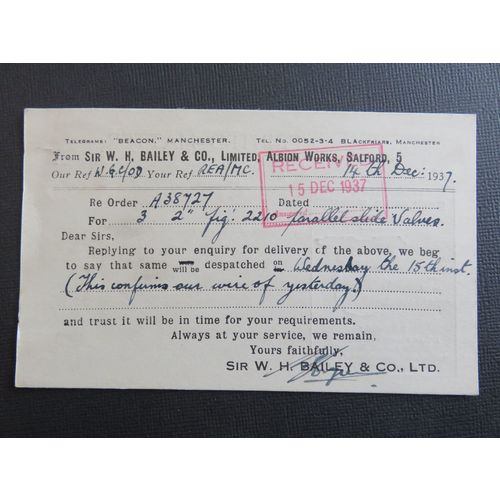 TELEGRAMS: "BEACON," MANCHESTER. TEL. NO. 0052-3-4 BLACKFRIARS, MANCHESTER
From SIR W. H. BAILEY & CO., LIMITED, ALBION WORKS, SALFORD, 5
Our Ref Your Ref. REA/MC. 14th Dec: 1937.
RECEIVED
15 DEC 1937
Re Order A38727 Dated
For 3 2" fig: 2210 parallel slide Valves.
Dear Sirs,
Replying to your enquiry for delivery of the above, we beg
to say that same will be despatched on Wednesday the 15th inst.
(This confirms our wire of yesterday.)
and trust it will be in time for your requirements.
Always at your service, we remain,
Yours faithfully,
SIR W. H. BAILEY & CO., LTD.